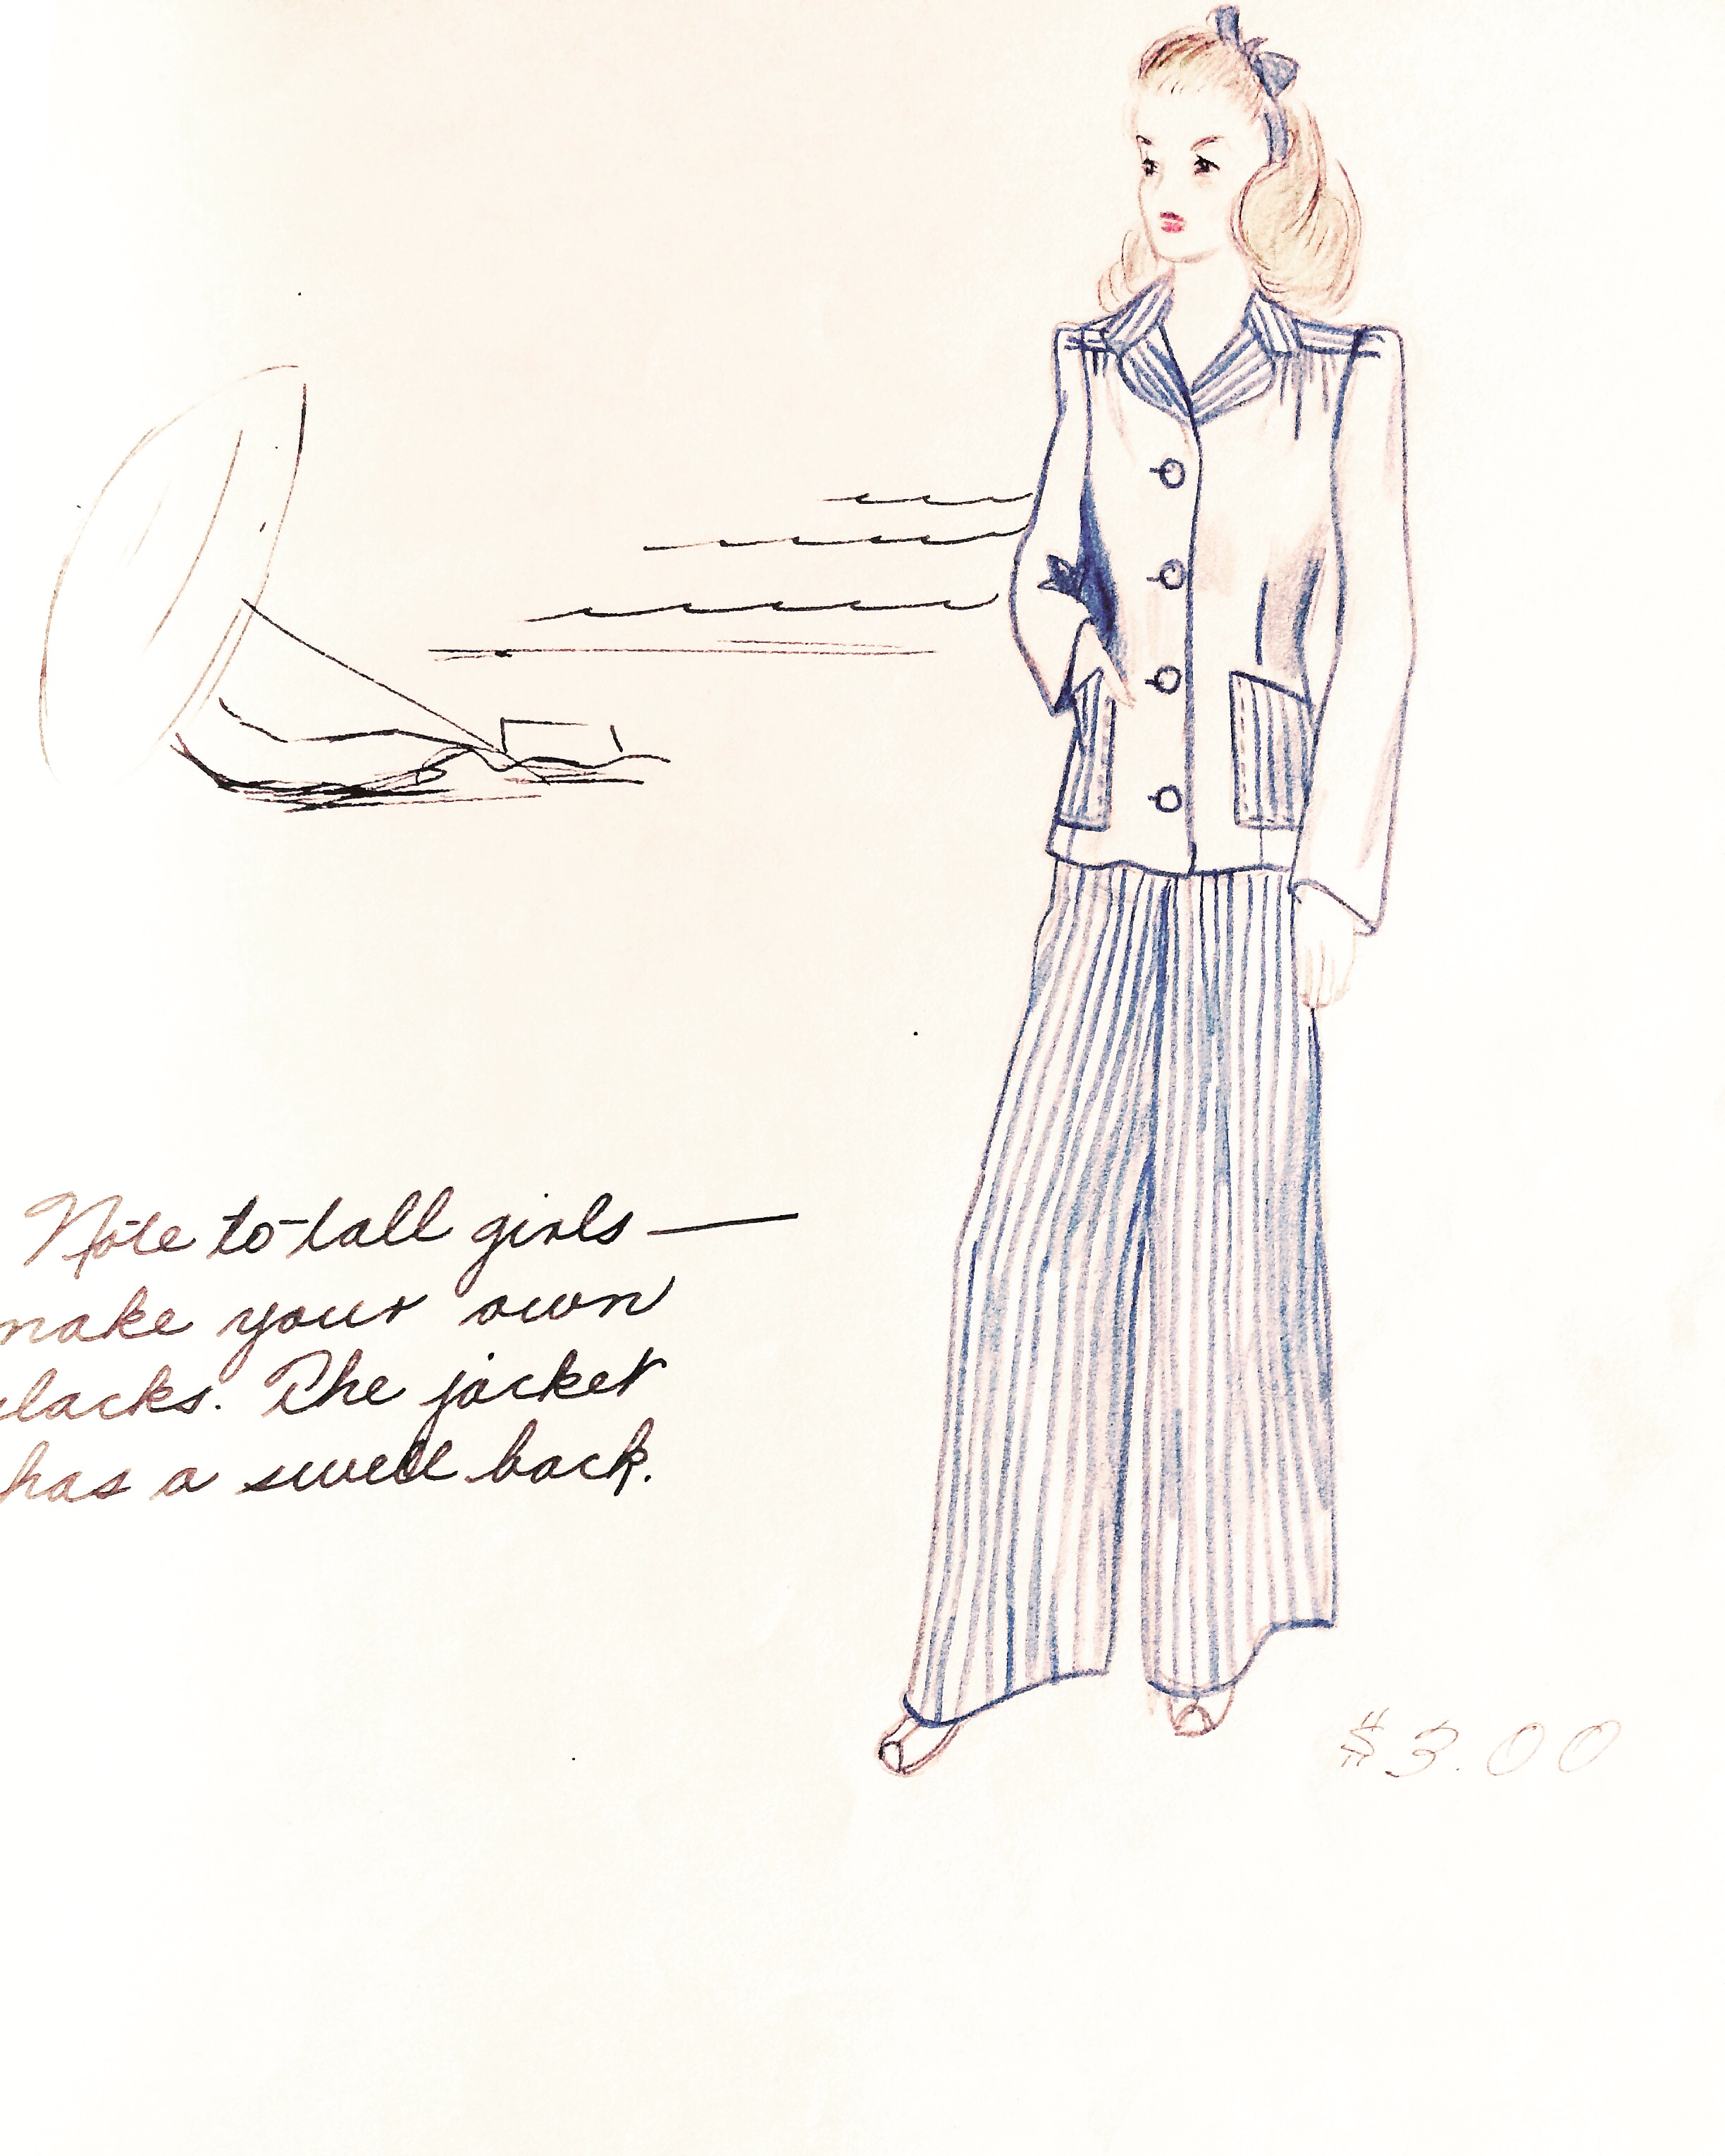 Note to tall girls —
make your own
slacks. The jacket
has a swell back.
$3.00